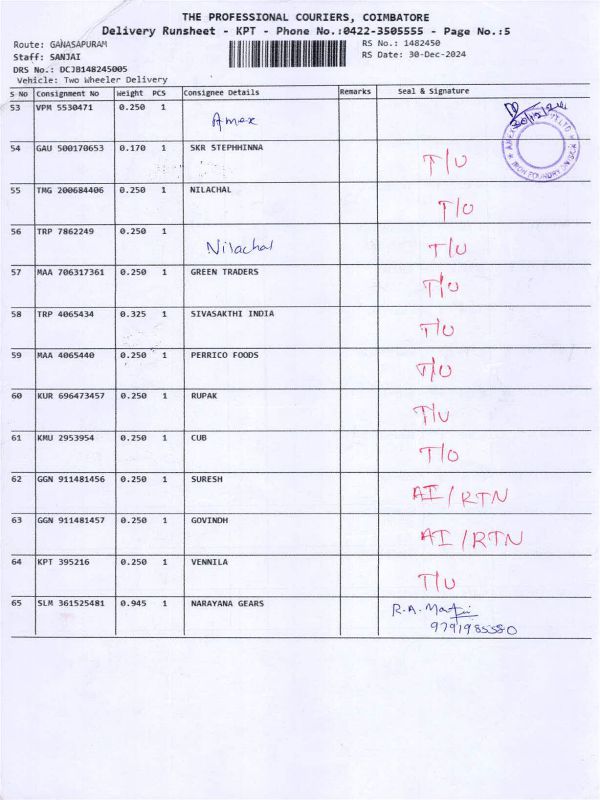 THE PROFESSIONAL COURIERS, COIMBATORE
Delivery Runsheet - KPT - Phone No.:0422-3505555 - Page No.:5
Route: GANASAPURAM RS No.: 1482450
Staff: SANJAI RS Date: 30-Dec-2024
DRS No.: DCJB148245005
Vehicle: Two Wheeler Delivery
S No Consignment No Weight PCS Consignee Details Remarks Seal & Signature
53 VPM 5530471 0.250 1 Amex
54 GAU 500170653 0.170 1 SKR STEPHHINNA T/U
55 TMG 200684406 0.250 1 NILACHAL T/U
56 TRP 7862249 0.250 1 Nilachal T/U
57 MAA 706317361 0.250 1 GREEN TRADERS T/U
58 TRP 4065434 0.325 1 SIVASAKTHI INDIA T/U
59 MAA 4065440 0.250 1 PERRICO FOODS T/U
60 KUR 696473457 0.250 1 RUPAK T/U
61 KMU 2953954 0.250 1 CUB T/U
62 GGN 911481456 0.250 1 SURESH AI/RTN
63 GGN 911481457 0.250 1 GOVINDH AI/RTN
64 KPT 395216 0.250 1 VENNILA T/U
65 SLM 361525481 0.945 1 NARAYANA GEARS R.A.